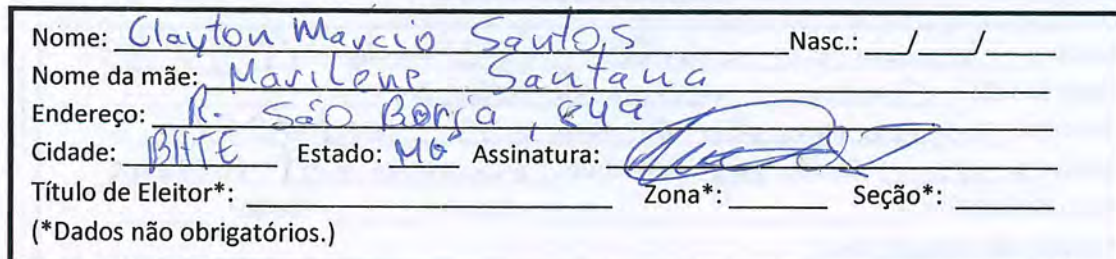 Nome: Clayton Marcio Santos Nasc.: / /
Nome da mãe: Marilene Santana
Endereço: R. São Borja, 849
Cidade: BHTE Estado: MG Assinatura:
Título de Eleitor*: Zona*: Seção*:
(*Dados não obrigatórios.)